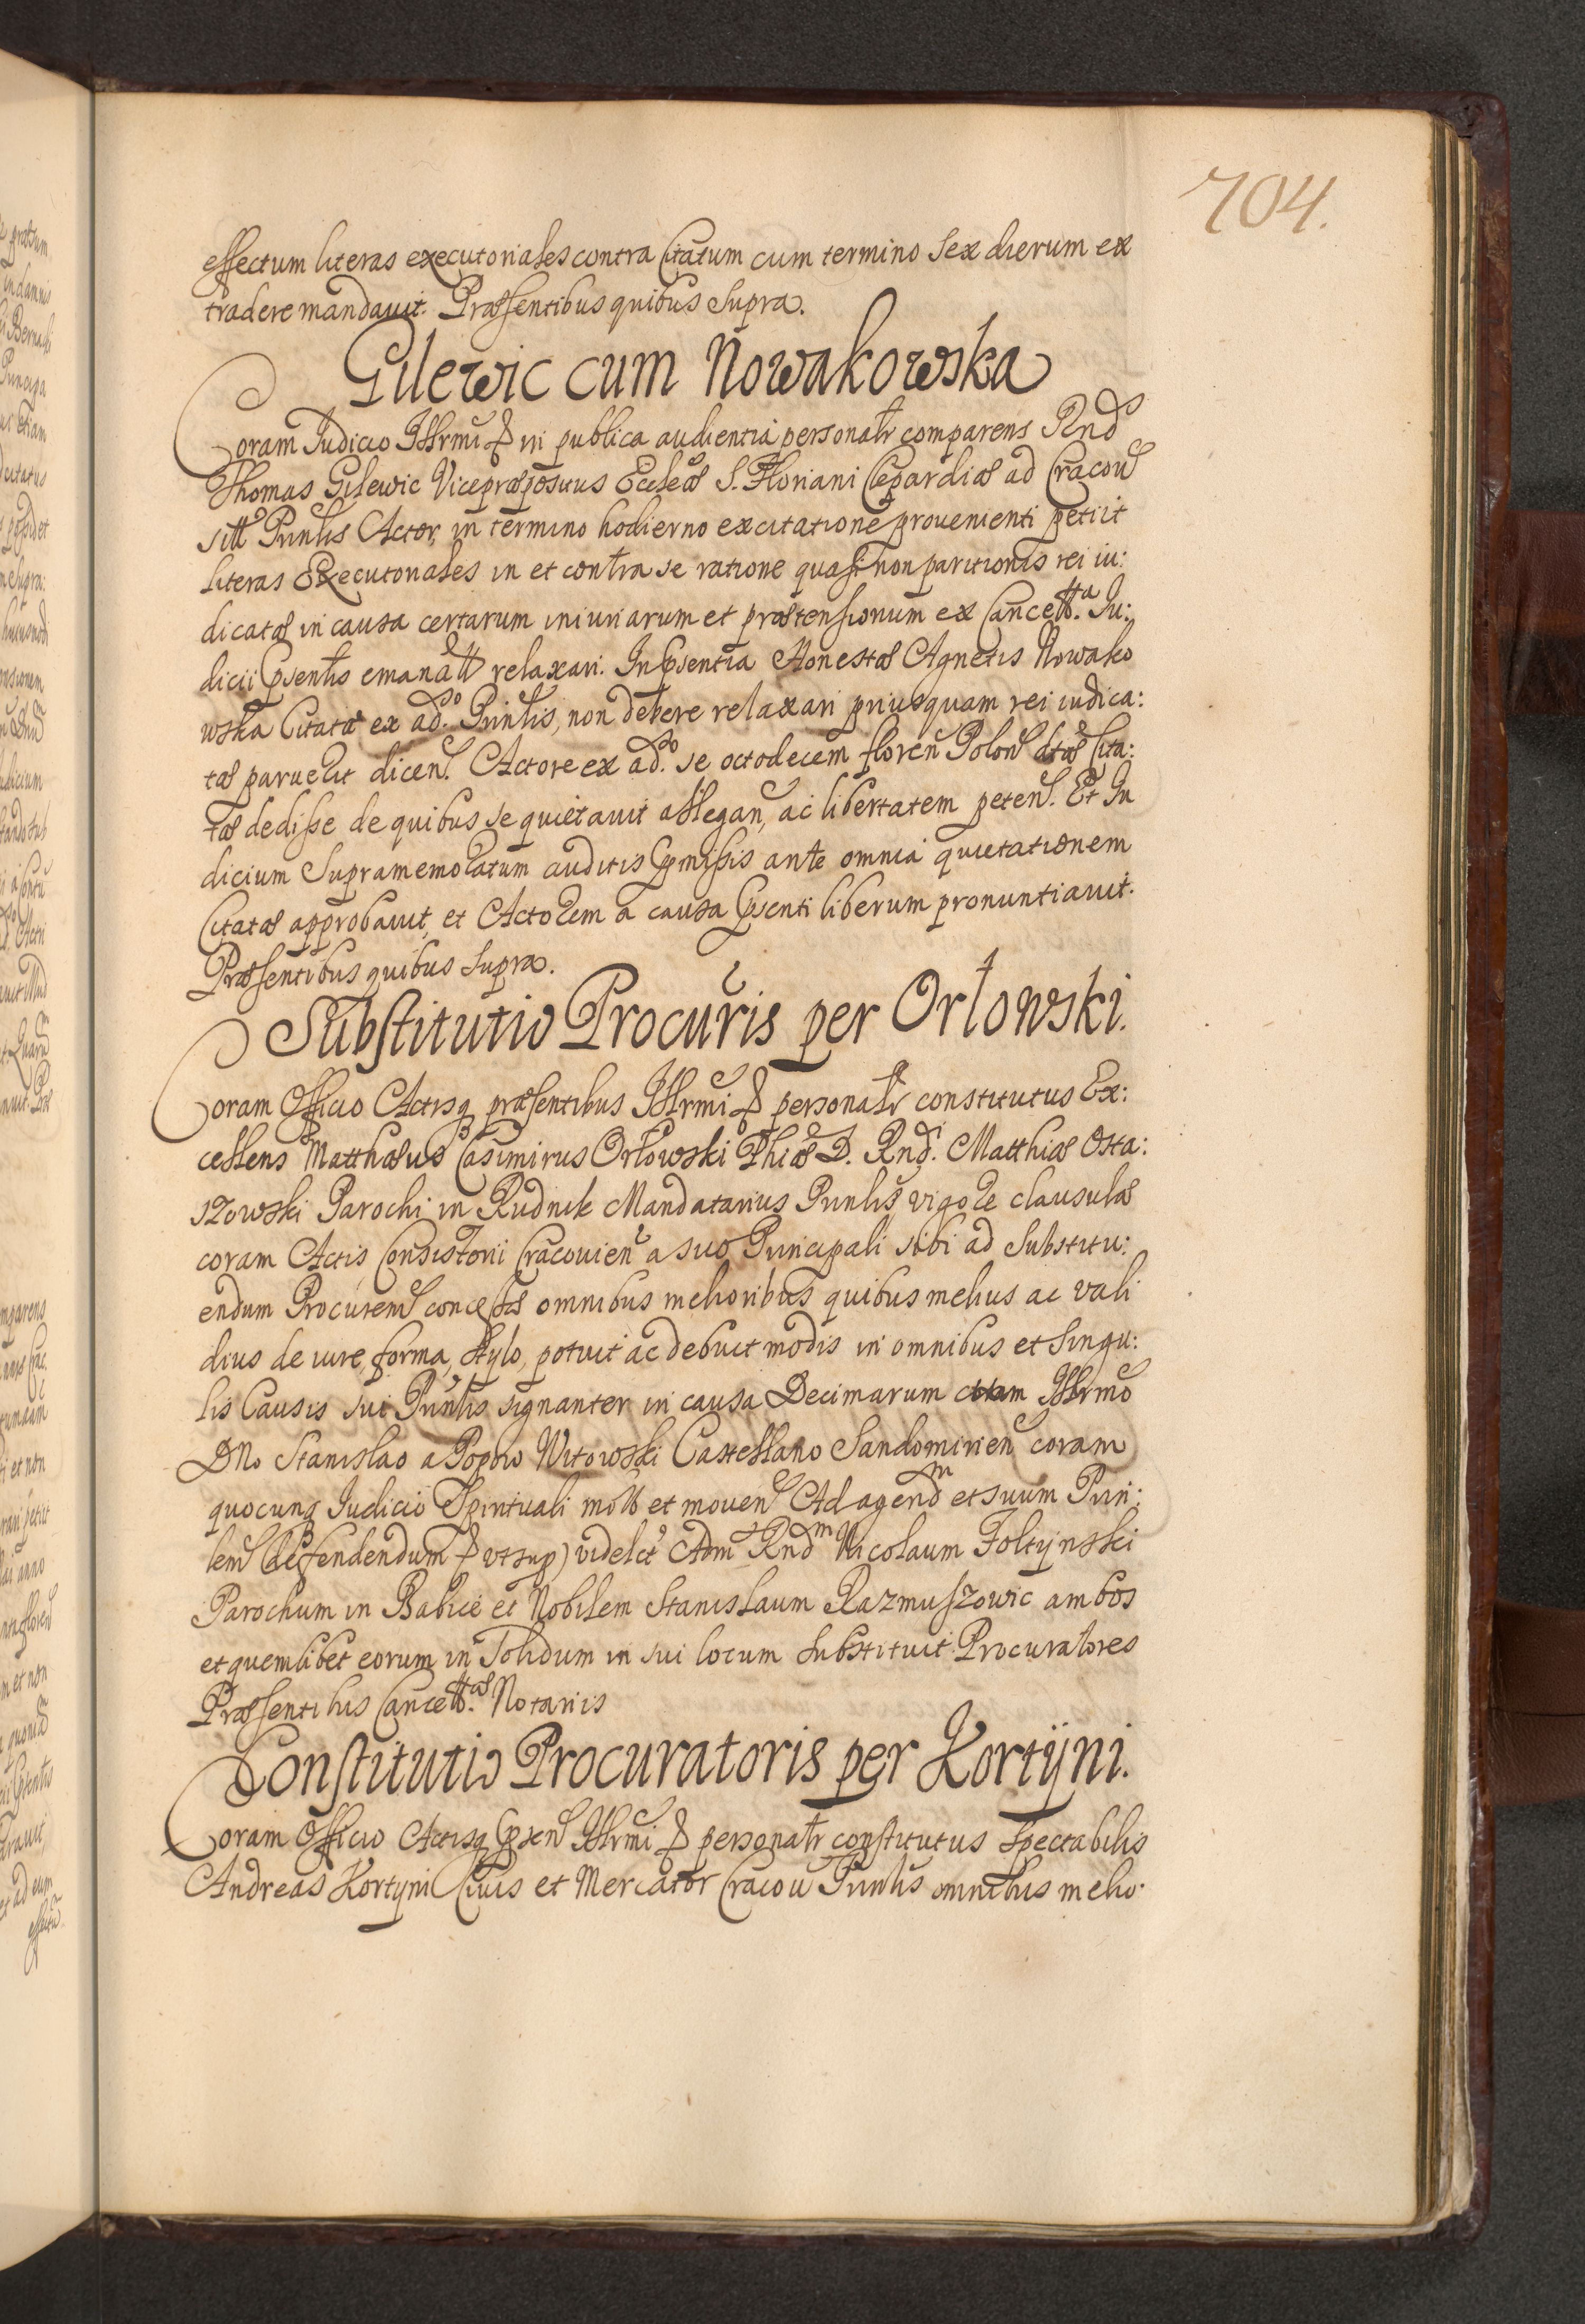 704.
effectum literas executoriales contra Citatum cum termino sex dierum ex
tradere mandavit. Præsentibus quibus supra.
Gilewic cum Nowakowska
Coram Judicio Illrmi & in publica audientia personalr comparens Rnd
Thomas Gilewic Vicepræpositus Eccleæ S. Floriani Clepardiæ ad Cracou
sitt Prinlis Actor, in termino hodierno ex citatione provenienti petiit
literas Executoriales in et contra se ratione quasi non paritionis rei iu:
dicatæ in causa certarum iniuriarum et prætensionum ex Cancell.ta Ju:
dicii Psentis emanatt relaxari. In Psentia Honestæ Agnetis Nowako
wska Citatæ ex ad.so Prinlis, non debere relaxari priusquam rei iudica:
tæ paruerit dicen. Actore ex ad.so se octodecem floren Polon dtæ Cita:
tæ dedisse de quibus se quietavit allegan, ac libertatem peten. Et Ju
dicium supramemoratum auditis Pmissis ante omnia quietationem
Citatæ approbavit, et Actorem a causa Psenti liberum pronuntiavit.
Præsentibus quibus supra.
Substitutio Procuris per Orłowski.
Coram Officio Actisq præsentibus Illrmi & personalr constitutus Ex:
cellens Matthæus Casimirus Orłowski Phiæ D. Rnd. Matthiæ Osta:
szowski Parochi in Rudnik Mandatarius Prinlis vigore clausulæ
coram Actis Consistorii Cracovien a suo Principali sibi ad substitu:
endum Procurem concessæ omnibus melioribus quibus melius ac vali
dius de iure, forma, stylo, potuit ac debuit modis in omnibus et singu:
lis Causis sui Prinlis signanter in causa Decimarum cum Illrmo
DNo Stanislao a Popow Witowski Castellano Sandomirien coram
quocunq Judicio Spirituali mott et moven Ad agendm et suum Prin:
lem defendendum & vt sup) videlct Adm Rndm Nicolaum Foltynski
Parochum in Babice et Nobilem Stanislaum Razmuszowic ambos
et quemlibet eorum in solidum in sui locum substituit Procuratores
Præsentibus Cancell.æ Notariis
Constitutio Procuratoris per Kortÿni.
Coram Officio Actisq Psen Illrmi & personalr constitutus Spectabilis
Andreas Kortyni Civis et Mercator Cracou Prinlis omnibus melio: